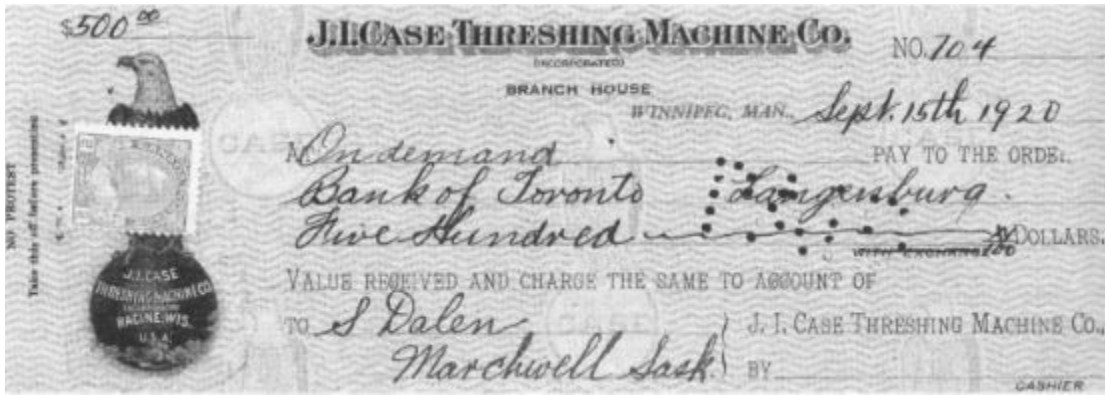 $500 00
J.I.CASE THRESHING MACHINE CO.
(INCORPORATED)
BRANCH HOUSE
NO. 704
WINNIPEG, MAN., Sept. 15th 1920
On demand PAY TO THE ORDE
Bank of Toronto Langenburg
Five Hundred DOLLARS.
WITH EXCHANGE
VALUE RECEIVED AND CHARGE THE SAME TO ACCOUNT OF
TO S Dalen
Marchwell Sask.
J. I. CASE THRESHING MACHINE CO.,
BY
CASHIER
NO PROTEST
Take this off before presenting
J.I.CASE
THRESHING MACHINE CO
INCORPORATED
RACINE, WIS.
U.S.A.